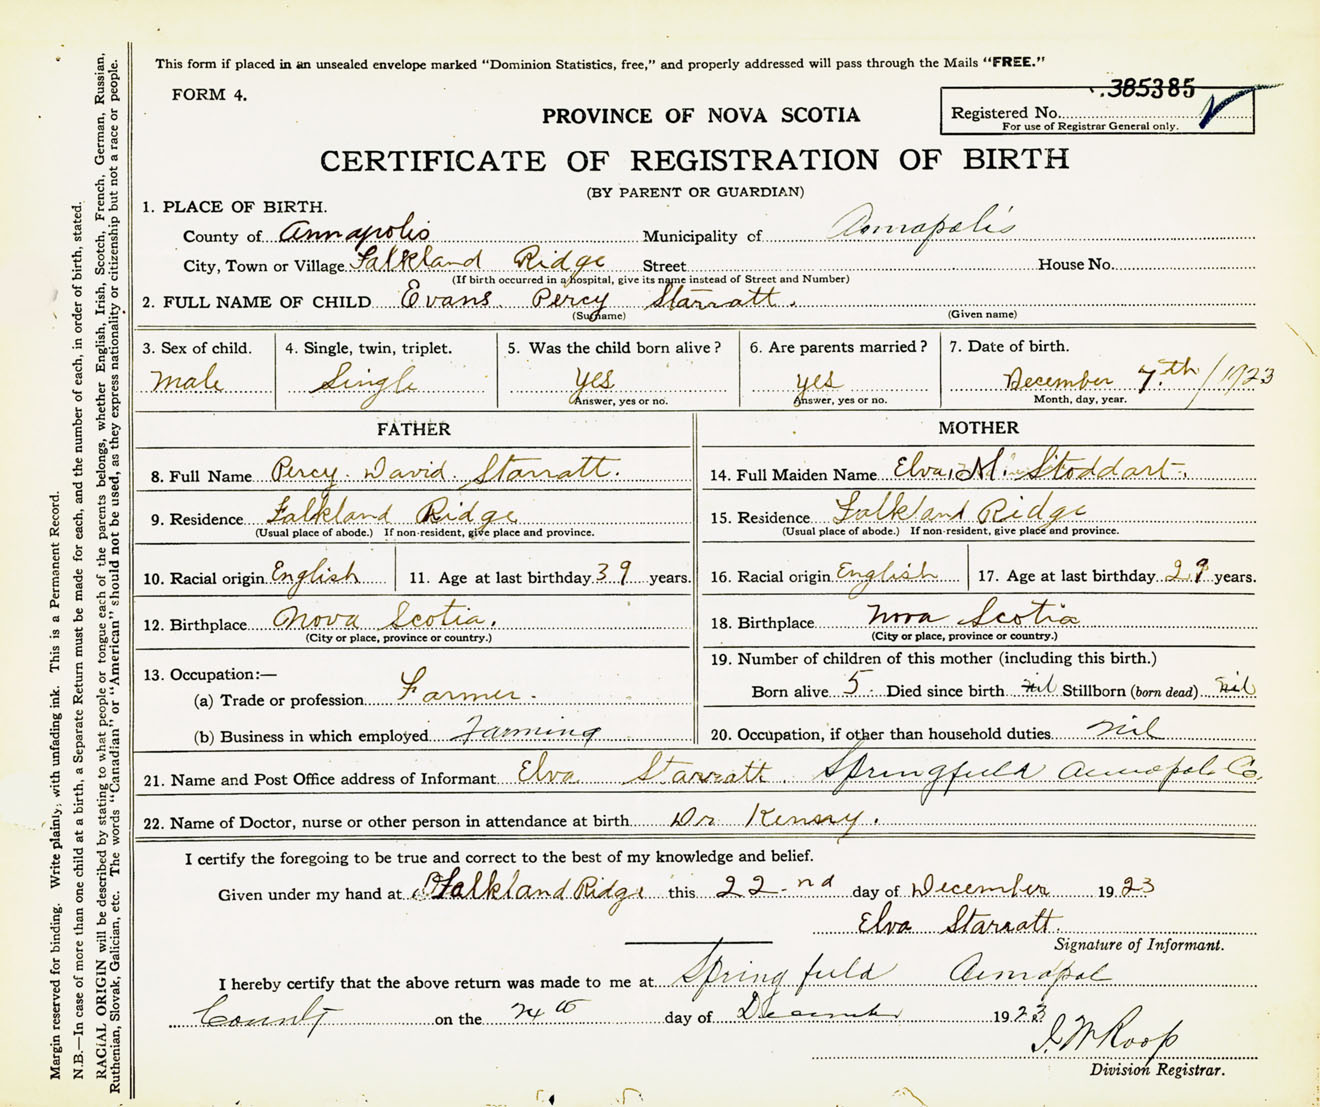 This form if placed in an unsealed envelope marked "Dominion Statistics, free," and properly addressed will pass through the Mails "FREE."
FORM 4.
385385
PROVINCE OF NOVA SCOTIA
Registered No.
For use of Registrar General only.
CERTIFICATE OF REGISTRATION OF BIRTH
(BY PARENT OR GUARDIAN)
1. PLACE OF BIRTH.
County of Annapolis Municipality of Annapolis
City, Town or Village Falkland Ridge Street House No.
(If birth occurred in a hospital, give its name instead of Street and Number)
2. FULL NAME OF CHILD Evans Percy Starratt.
(Surname) (Given name)
3. Sex of child. 4. Single, twin, triplet. 5. Was the child born alive? 6. Are parents married? 7. Date of birth.
Male Single yes yes December 7th/1923
Answer, yes or no. Answer, yes or no. Month, day, year.
FATHER MOTHER
8. Full Name Percy David Starratt. 14. Full Maiden Name Elva M. Stoddart.
9. Residence Falkland Ridge 15. Residence Falkland Ridge
(Usual place of abode.) If non-resident, give place and province. (Usual place of abode.) If non-resident, give place and province.
10. Racial origin English 11. Age at last birthday 39 years. 16. Racial origin English 17. Age at last birthday 29 years.
12. Birthplace Nova Scotia. 18. Birthplace Nova Scotia
(City or place, province or country.) (City or place, province or country.)
13. Occupation:— 19. Number of children of this mother (including this birth.)
(a) Trade or profession Farmer. Born alive 5 Died since birth nil Stillborn (born dead) nil
(b) Business in which employed Farming 20. Occupation, if other than household duties nil
21. Name and Post Office address of Informant Elva Starratt Springfield Annapol Co.
22. Name of Doctor, nurse or other person in attendance at birth Dr
I certify the foregoing to be true and correct to the best of my knowledge and belief.
Given under my hand at Falkland Ridge this 22nd day of December 1923
Elva Starratt
Signature of Informant.
I hereby certify that the above return was made to me at Springfield Annapol
County on the 24th day of December 1923
J W Roop
Division Registrar.
Margin reserved for binding. Write plainly, with unfading ink. This is a Permanent Record.
N.B.—In case of more than one child at a birth, a Separate Return must be made for each, and the number of each, in order of birth, stated.
RACIAL ORIGIN will be described by stating to what people or tongue each of the parents belongs, whether English, Irish, Scotch, French, German, Russian,
Ruthenian, Slovak, Galician, etc. The words "Canadian" or "American" should not be used, as they express nationality or citizenship but not a race or people.